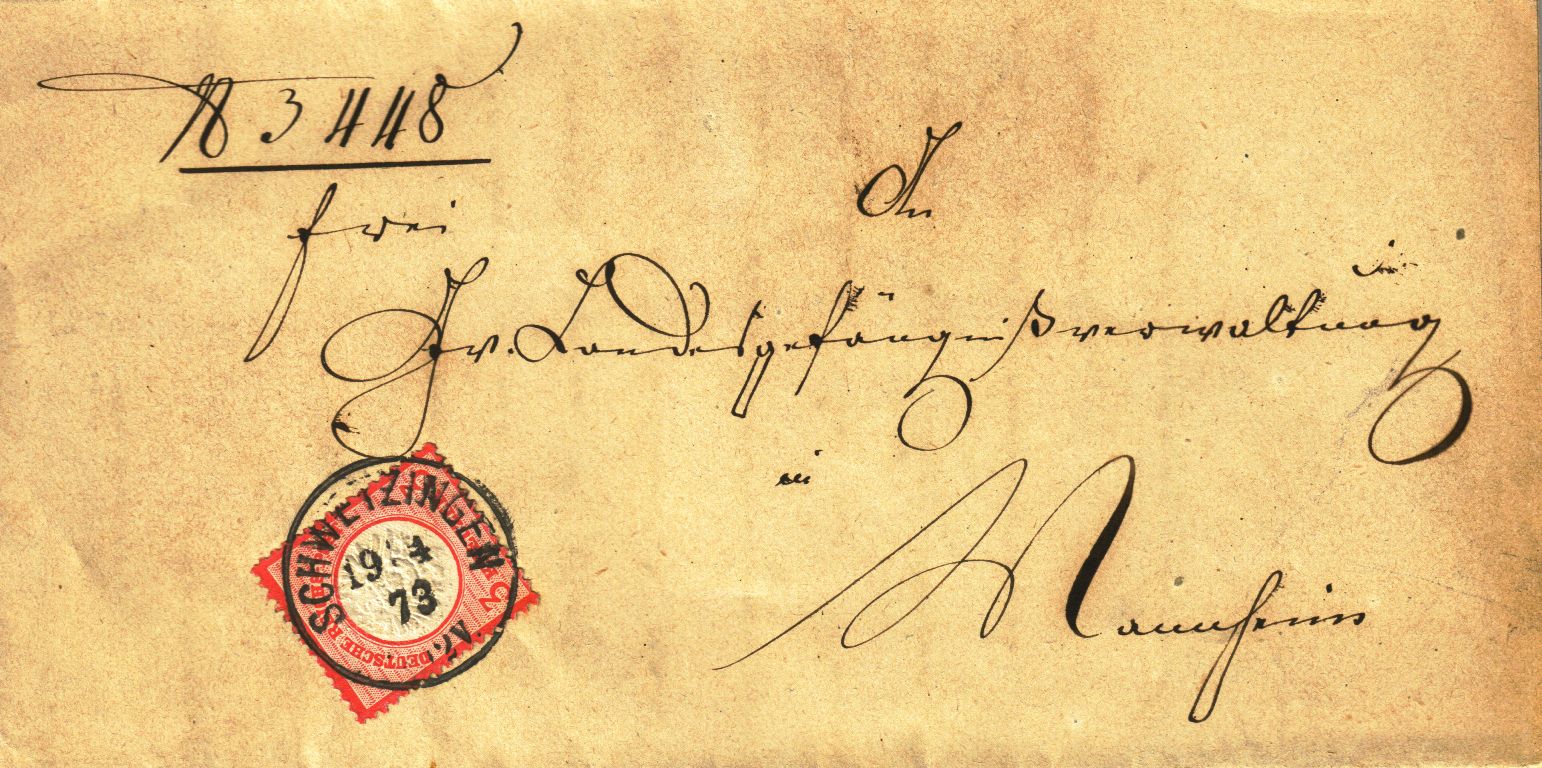 № 3448
frei
An
die
Gr. Landesgefängnißverwaltung
in
Mannheim
SCHWETZINGEN
19 4
73
12 V.
DEUTSCHE R